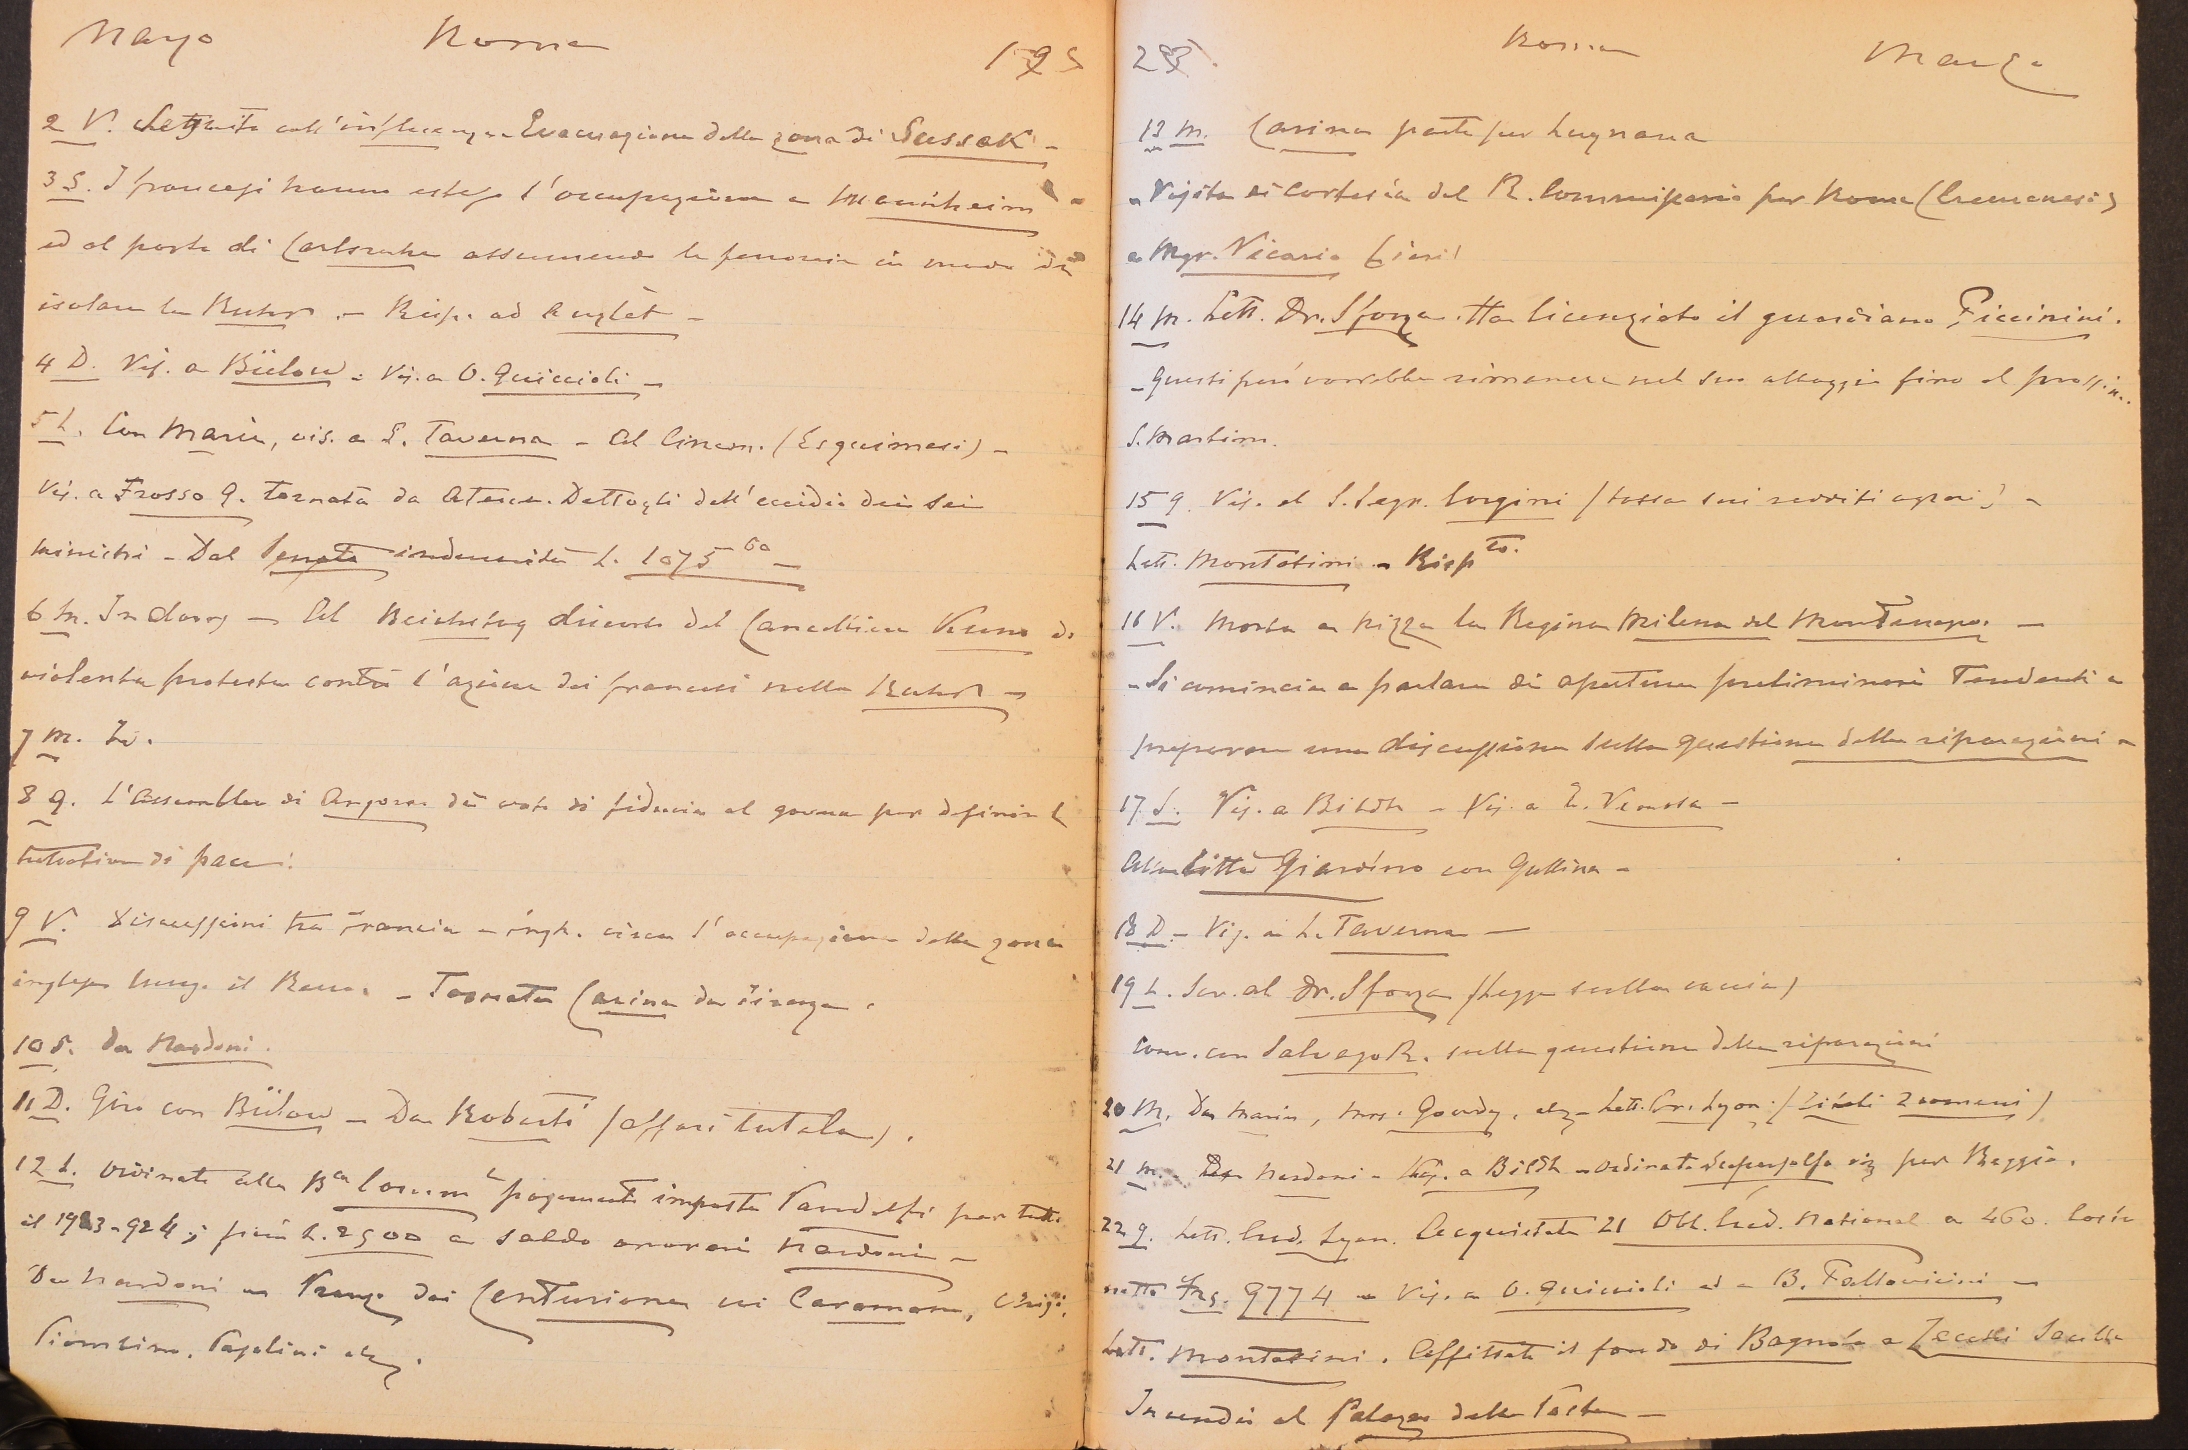 Marzo Roma 192
2 V. coll'influenza. Evacuazione della zona di Sussak -
3 S. I francesi hanno esteso l'occupazione a Mannheim -
ed al porto di Carlsruhe assumendo le ferrovie in modo da
isolare la Ruhr. - Risp. ad Anglét -
4 D. Vis. a Bülow - Vis. a O. Guiccioli -
5 L. Con Maria, vis. a L. Taverna - Al Cinem. (Esquimesi) -
Vis. a Frosso G. tornata da Atene. Dettagli dell'eccidio dei sei
ministri - Dal Senato indennità L. 1075 60 -
6 M. In do - Al Reichstag discorso del Cancelliere Kuno di
violenta protesta contro l'azione dei francesi nella Ruhr -
7 M. Id.
8 G. L'Assemblea di Angora dà voto di fiducia al governo per definire le
trattative di pace.
9 V. Discussioni tra Francia e Ingh. circa l'occupazione della zona
inglese lungo il Reno. - Tornata Carina da Firenze.
10 S. Da Nardoni.
11 D. Giro con Bülow - Da Roberti (affari tutela).
12 L. Ordinato alla Ba Comm le pagamento imposta Pandolfi per tutto
il 1923-924; più L. 2500 a saldo onorari Nardoni -
Da Nardoni a Pranzo dai Centurione coi Caraman, Chigi,
Piombino, Pasolini etc.
28 Roma Marzo
13 M. Carina parte per Lugnano
- Visita di cortesia del R. Commissario per Roma (Cremonesi)
a Mgr. Vicario
14 M. Lett. Dr. Sforza. Ha licenziato il guardiano Piccinini.
- Questi però vorrebbe rimanere nel suo alloggio fino al prossimo
S. Martino.
15 G. Vis. al S. Segr. Corgini (tassa sui redditi agrari) -
Lett. Montatini - Risp to.
16 V. Morta a Nizza la Regina Milena del Montenegro. -
- Si comincia a parlare di aperture preliminari tendenti a
preparare una discussione sulla questione delle riparazioni -
17 S. Vis. a Bildt - Vis. a E. Venosta -
Alla Città Giardino con Gallina -
18 D. - Vis. a L. Taverna -
19 L. Scr. al Dr. Sforza (Legge sulla caccia)
Conv. con Salvago R. sulla questione delle riparazioni
20 M. Da Maria, Mrs. Goudy, etc - Lett. Cr. Lyon. (Titoli Rumeni)
21 M. - Da Nardoni - Vis. a Bildt - Ordinata per Reggio.
22 G. Lett. Cred. Lyon. Acquistate 21 Obl. Cred. National a 460. Costo
netto Frs. 9774 - Vis. a O. Guiccioli ed a B. Pallavicini -
Lett. Montatini. Affittato il fondo di Bagnolo a
Incendio al Palazzo delle Poste -